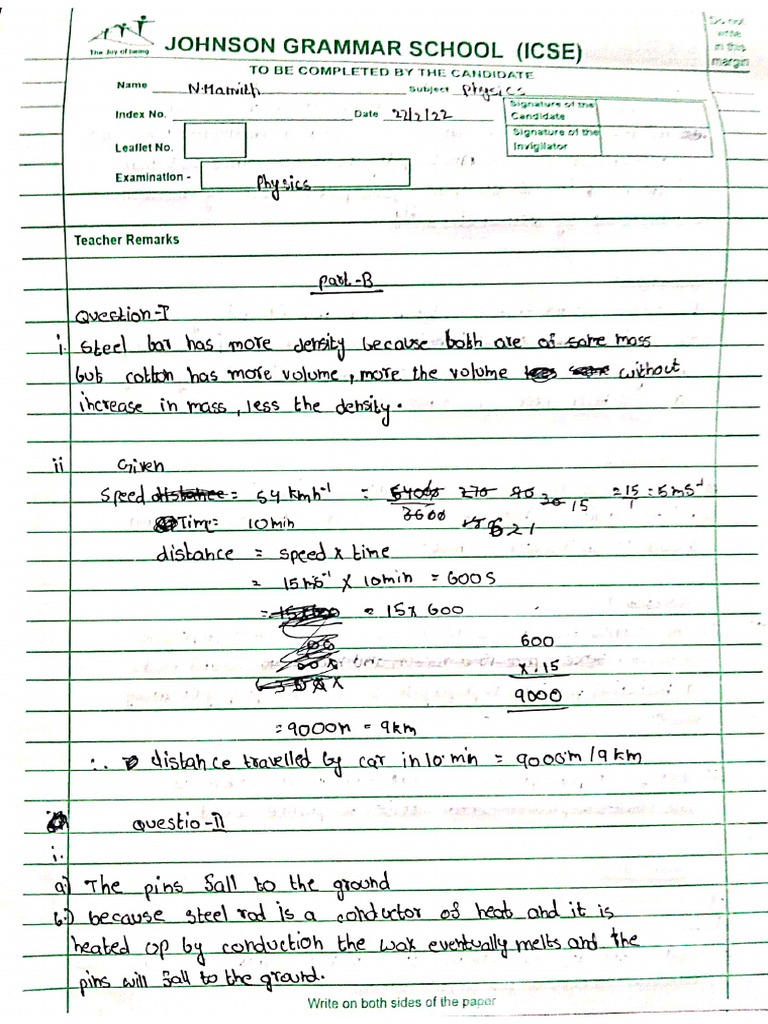 The Joy of being
JOHNSON GRAMMAR SCHOOL (ICSE)
Do not write in this margin
TO BE COMPLETED BY THE CANDIDATE
Name N.Hamith Subject Physics
Index No. Date 22/2/22
Signature of the Candidate
Leaflet No.
Signature of the Invigilator
Examination - Physics
Teacher Remarks
Part-B
Question-I
i. Steel bar has more density because both are of same mass
but cotton has more volume, more the volume without
increase in mass, less the density.
ii Given
Speed = 54 kmh⁻¹ = 54000 270 90 30 15 = 15 = 5 ms⁻¹
3600 18 6 2 1 1
Time = 10 min
distance = speed x time
= 15 ms⁻¹ x 10 min = 600 s
= 15 x 600
600
x 15
9000
= 9000m = 9km
∴ distance travelled by car in 10 min = 9000m / 9 km
Questio-II
i.
a) The pins fall to the ground
b.) because steel rod is a conductor of heat and it is
heated up by conduction the wax eventually melts and the
pins will fall to the ground.
Write on both sides of the paper